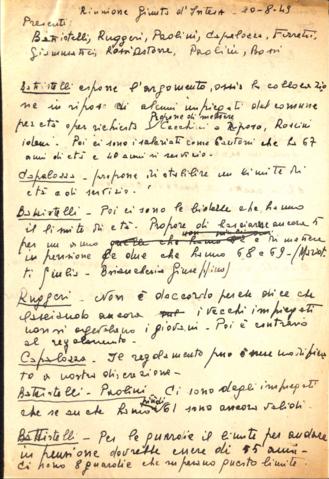 Riunione Giunta d'Intesa - 20-8-49
Presenti:
Battistelli, Ruggeri, Paolini, Capalozza, Ferretti,
Giommetti, Paolini, Bossi
Battistelli espone l'argomento, ossia la collocazio
ne in riposo di alcuni impiegati del comune
per età o per richiesta. Propone di mettere Cecchini a riposo, Roscini
idem. Poi ci sono i salariati come Bertoni che ha 67
anni di età e 40 anni di servizio.
Capalozza - propone di stabilire un limite di
età o di servizio.
Battistelli - Poi ci sono le bidelle che hanno
il limite di età. Propone di lasciare ancora
per un anno e di mettere
in pensione le due che hanno 68 e 69 -
Ruggeri - Non è d'accordo perché dice che
lasciando ancora i vecchi impiegati
non si agevolano i giovani. Poi è contrario
al regolamento.
Capalozza - Il regolamento può essere modifica
to a nostra discrezione.
Battistelli - Paolini Ci sono degli impiegati
che se anche hanno 61 sono ancora validi
Battistelli - Per le guardie il limite per andare
in pensione dovrebbe essere di 55 anni -
ci sono 8 guardie che superano questo limite.